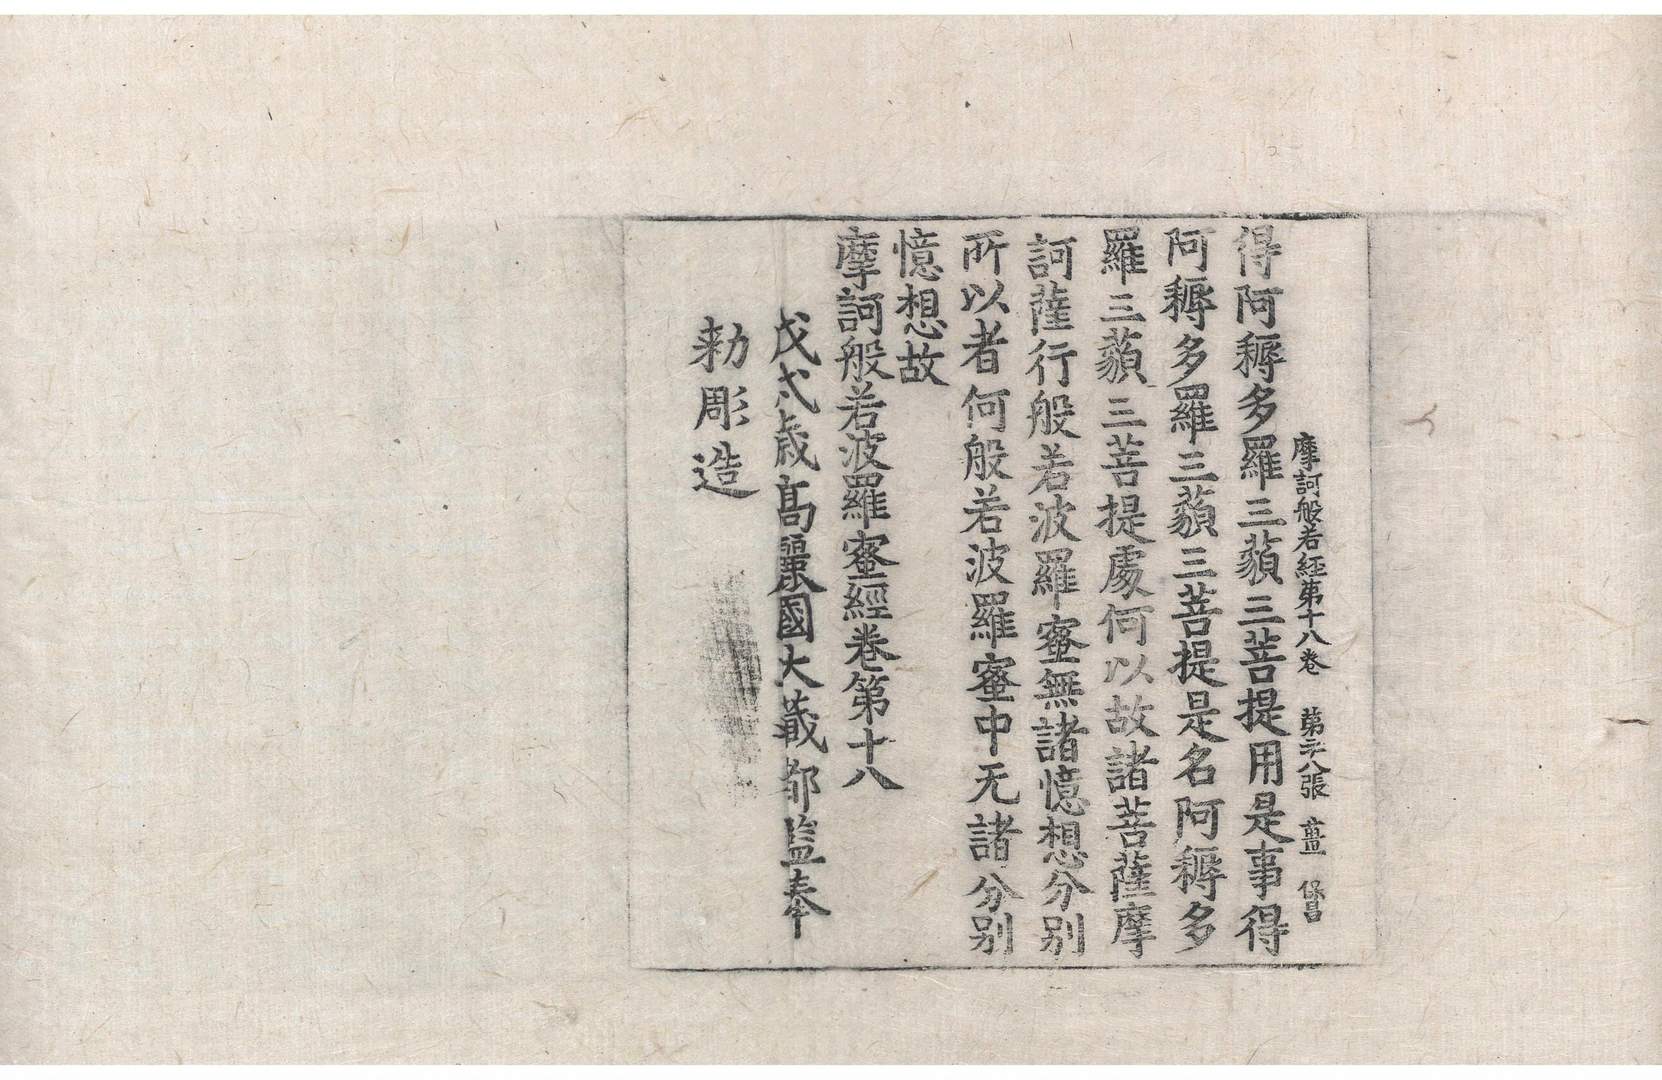 摩訶般若經第十八卷 第二八張 薑 保昌
得阿耨多羅三藐三菩提用是事得
阿耨多羅三藐三菩提是名阿耨多
羅三藐三菩提處何以故諸菩薩摩
訶薩行般若波羅蜜無諸憶想分別
所以者何般若波羅蜜中无諸分別
憶想故
摩訶般若波羅蜜經卷第十八
戊戌歲高麗國大藏都監奉
勅彫造